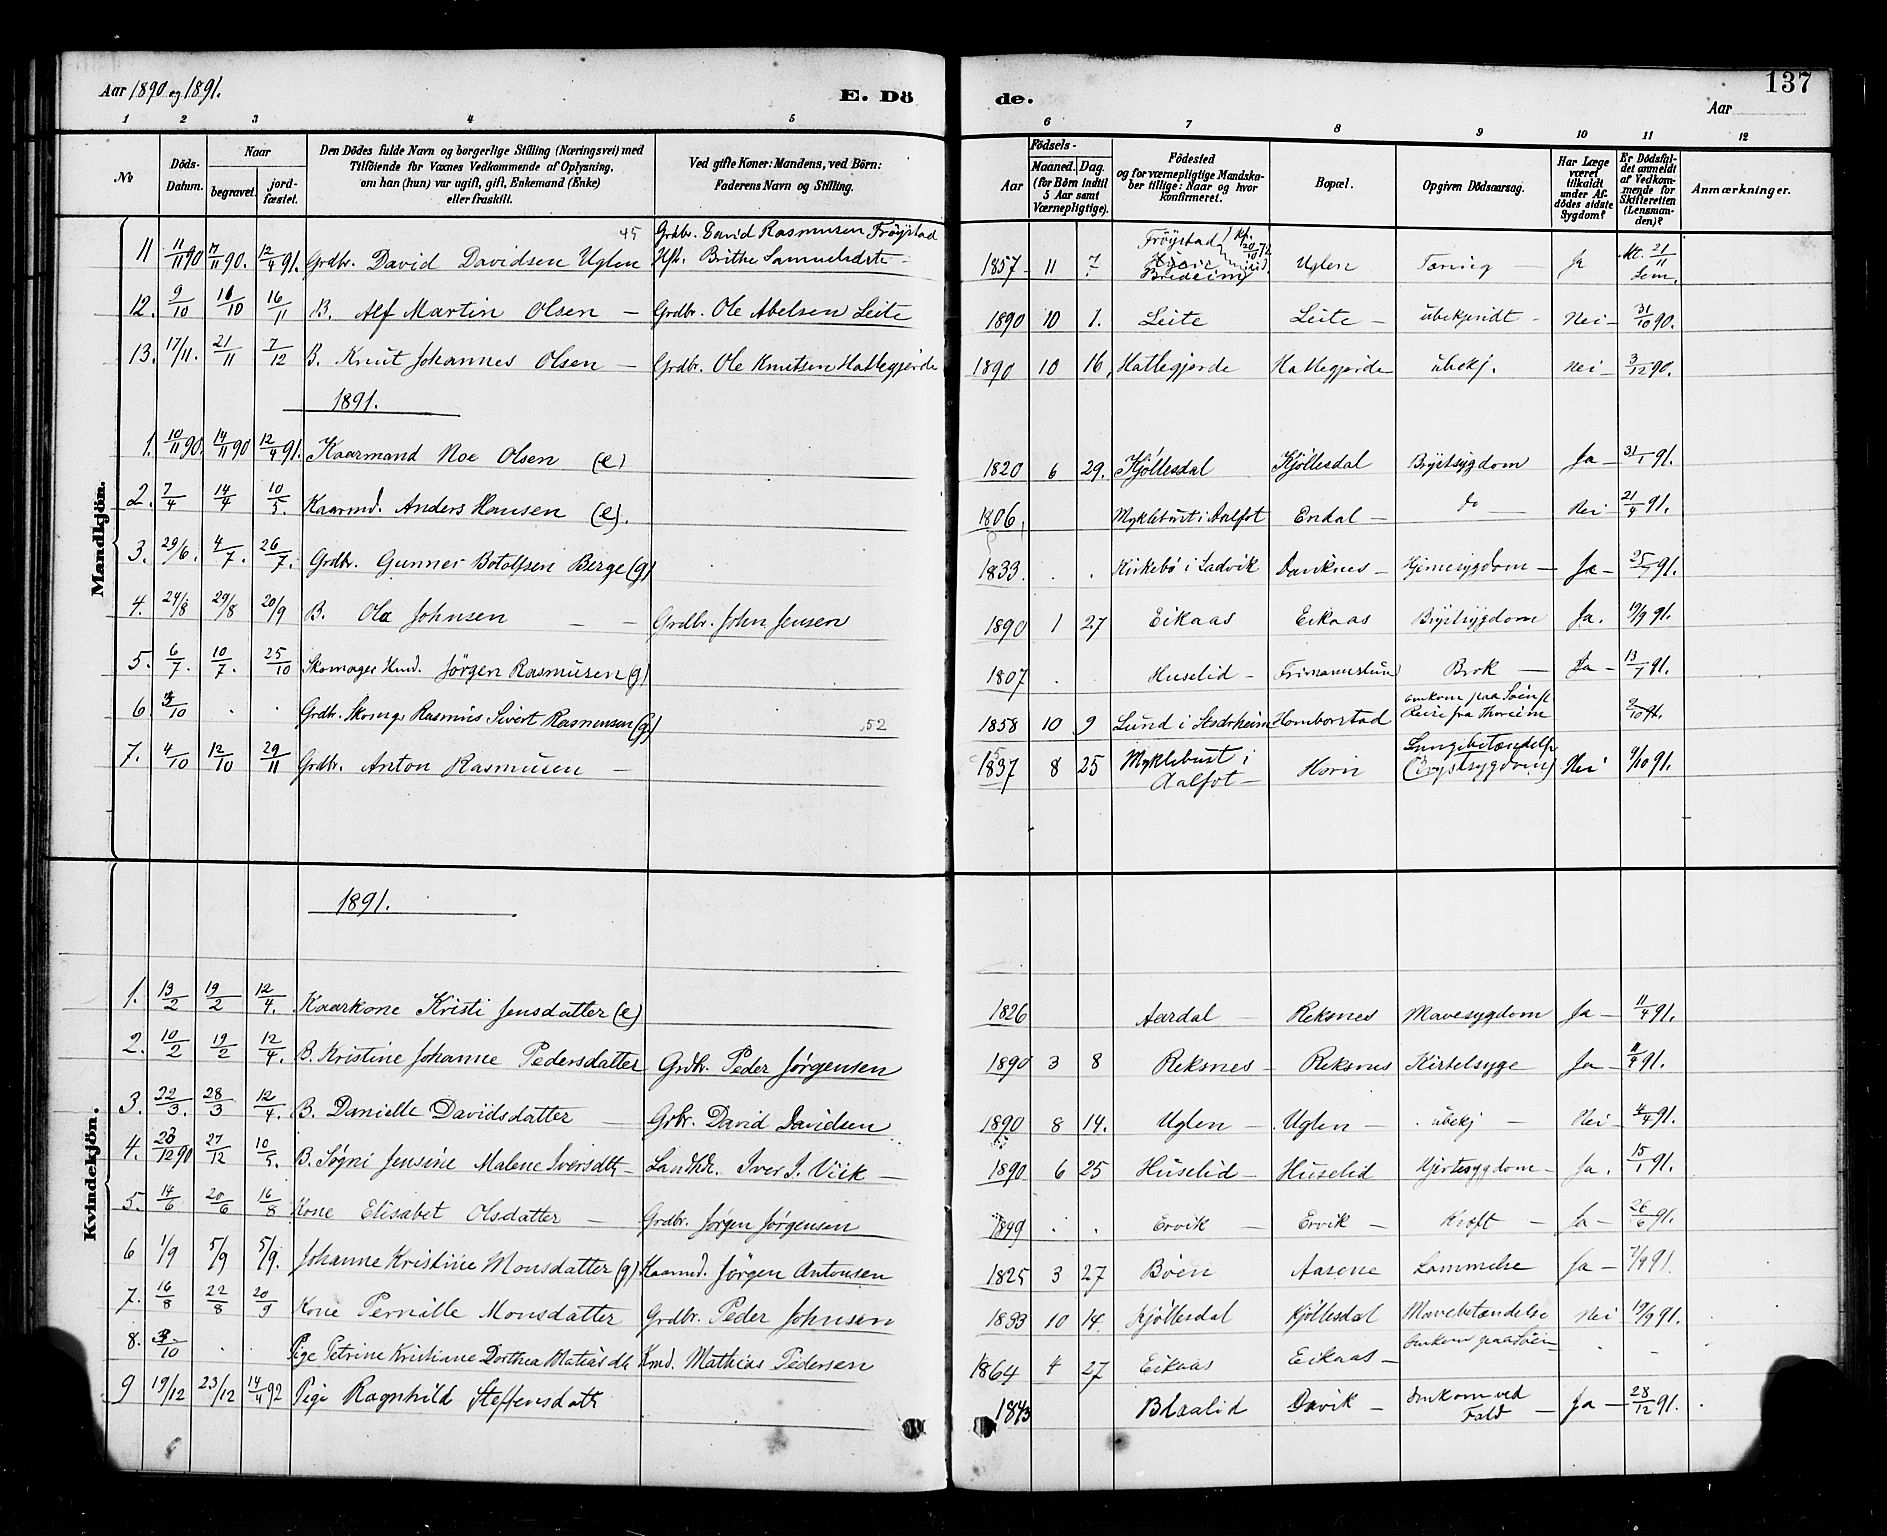 Aar 1890 og 1891. E. Dö de. Aar 137
1 2 3 4 5 6 7 8 9 10 11 12
No Döds-Datum. Naar begravet. jord-fæstet. Den Dödes fulde Navn og borgerlige Stilling (Næringsvei) med Tilföiende for Voxnes Vedkommende af Oplysning, om han (hun) var ugift, gift, Enkemand (Enke) eller fraskilt. Ved gifte Koner: Mandens, ved Börn: Faderens Navn og Stilling. Födsels- Aar Maaned. Dag. (for Börn indtil 5 Aar samt Værnepligtige). Födested og for værnepligtige Mandska-ber tillige: Naar og hvor konfirmeret. Bopæl. Opgiven Dödsaarsag. Har Læge været tilkaldt under Af-dödes sidste Sygdom? Er Dödsfal-det anmeldt af Vedkom-mende for Skifteretten (Lensman-den)? Anmærkninger.
Mandkjön.
45 Grdbr. David Rasmusen Fröystad
11 11/11 90 17/11 90. 12/4 91. Grdbr. David Davidsen Uglen Hst. Brithe Samuelsdtr 1857 11 7 Fröystad Bredeim Uglen Tæring Ja 21/11
12. 9/10 16/10 16/11 B. Alf Martin Olsen Grdbr. Ole Abelsen Leite 1890 10 1. Leite Leite ubekjendt Nei 31/10 90.
13. 17/11. 21/11 7/12 B. Knut Johannes Olsen Grdbr. Ole Knutsen Hattegjerde 1890 10 16. Hattegjerde Hattegjerde ubekj. Nei 3/12 90.
1891.
1. 10/11 90. 14/11 90 12/4 91. Kaarmand Noe Olsen (e) 1820 6 29. Kjöllesdal Kjöllesdal Brystsygdom Ja 31/1 91.
2. 7/4 14/4 10/5. Kaarmd. Anders Hansen (e). 1806. Myklebust i Aalfot Endal do Nei 21/4 91.
3. 29/6. 4/7. 26/7. Grdbr. Gunner Botolfsen Berge (g) 1833. Kirkebö i Ladvik Dauknes Hjernesygdom Ja 25/7 91.
4. 24/8 29/8 20/9 B. Ole Johnsen Grdbr. John Jensen 1890 1 27 Eikaas Eikaas Brystsygdom Ja. 19/9 91.
5. 6/7. 10/7. 25/10 Skomager Hmd. Jörgen Rasmusen (g) 1807 Huselid Frimannslund Brok Ja 13/7 91.
6. 3/10 Grdbr. Skomgr Rasmus Sivert Rasmussen (g) 52 1858 10 9 Lund i Stadsheim Homborstad omkom paa Söen p. Reise fra Thoreim 9/10 91.
7. 4/10 12/10 29/11 Grdbr. Anton Rasmusen 1837 8 25 Myklebust i Aalfot Horn Lungebetændelse (Brystsygdom) Nei 9/10 91.
Kvindekjön.
1891.
1. 13/2 19/2 12/4. Kaarkone Kristi Jensdatter (e) 1826 Aardal Reksnes Mavesygdom Ja 11/4 91.
2. 10/2 19/2 12/4. B. Kristine Johanne Pedersdatter Grdbr. Peder Jørgensen 1890 3 8 Reksnes Reksnes Kirtelsyge Ja 11/4 91.
3. 22/3. 28/3 12/4. B. Danielle Davidsdatter Grbr. David Davidsen 1890 8 14. Uglen Uglen ubekj Nei 4/4 91.
4. 20/12 90 27/12 10/5. B. Søgni Jensine Malene Iversdtr Landhdr. Iver J. Viik 1890 6 25 Huselid Huselid Hjertesygdom Ja. 15/1 91.
5. 14/6 20/6 16/8 Kone Elisabet Olsdatter Grdbr. Jørgen Jørgensen 1849 Ervik Ervik Kræft Ja 26/6 91.
6 1/9 5/9 5/9. Johanne Kristine Monsdatter (g) Kaarmd. Jørgen Antonsen 1825 3 27 Böen Aasene Lammelse Ja 7/9 91.
7. 16/8 22/8 20/9 Kone Pernille Monsdatter Grdbr. Peder Johnsen 1833 10 14. Kjöllesdal Kjöllesdal Mavebetændelse Nei 19/9 91.
8. 3/10 Pige Petrine Kristiane Dorthea Matiasdtr Kmd. Mathias Pedersen 1864 4 27 Eikaas Eikaas Omkom paa Söen
9 19/12 23/12 14/4 92 Pige Ragnhild Steffensdatr 1843 Blaalid Davik Omkom ved Fald Ja 28/12 91.